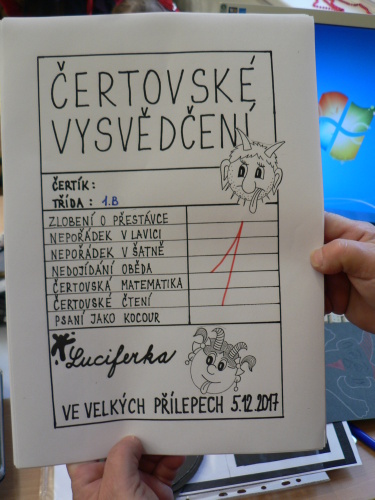 ČERTOVSKÉ
VYSVĚDČENÍ
ČERTÍK:
TŘÍDA: 1.B
ZLOBENÍ O PŘESTÁVCE
NEPOŘÁDEK V LAVICI
NEPOŘÁDEK V ŠATNĚ
NEDOJÍDÁNÍ OBĚDA
ČERTOVSKÁ MATEMATIKA
ČERTOVSKÉ ČTENÍ
PSANÍ JAKO KOCOUR
1
Luciferka
VE VELKÝCH PŘÍLEPECH 5.12.2017